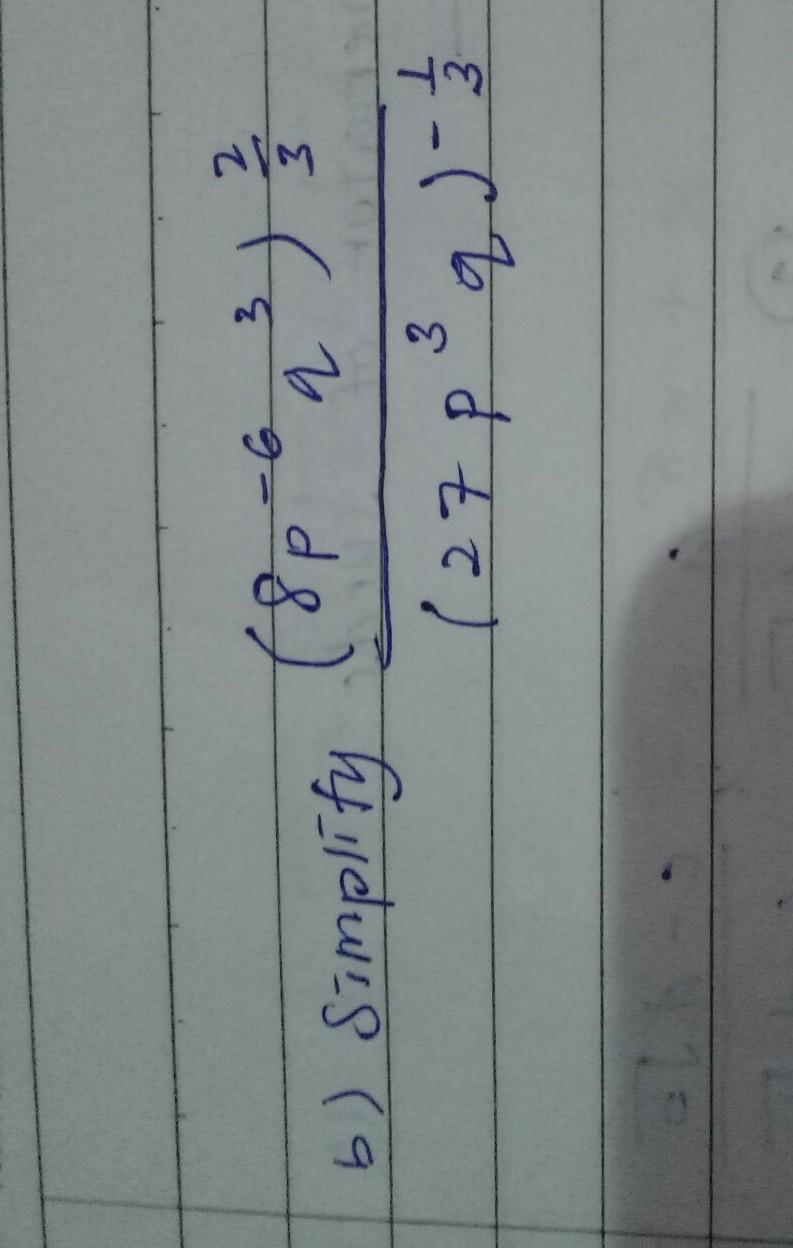 b) Simplify (8p⁻⁶ q³)^(2/3) / (27 p³ q)^(-1/3)